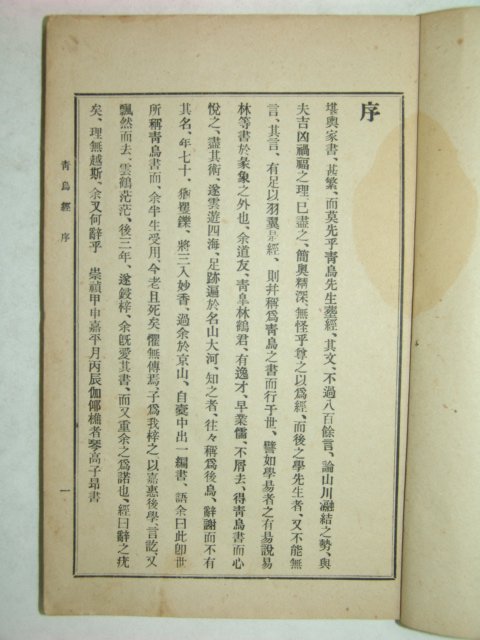 序
堪輿家書、甚繁、而莫先乎靑烏先生葬經、其文、不過八百餘言、論山川瀜結之勢、與
夫吉凶禍福之理、已盡之、簡奧精深、無怪乎尊之以爲經、而後之學先生者、又不能無
言、其言、有足以羽翼是經、則幷稱爲靑烏之書而行于世、譬如學易者之有易說易
林等書於彖象之外也、余道友、靑皐林鶴君、有逸才、早業儒、不屑去、得靑烏書而心
悅之、盡其術、遂雲遊四海、足跡遍於名山大河、知之者、往々稱爲後烏、辭謝而不有
其名、年七十、猶矍鑠、將三入妙香、過余於京山、自槖中出一編書、語余曰此卽世
所稱靑烏書而、余半生受用、今老且死矣、懼無傳焉、子爲我梓之、以嘉惠後學言訖、又
飄然而去、雲鶴茫茫、後三年、遂鋟梓、余旣愛其書、而又重余之爲諾也、經曰辭之疣
矣、理無越斯、余又何辭乎 崇禎甲申嘉平月丙辰伽倻樵者琴高子昂書
靑烏經 序
一